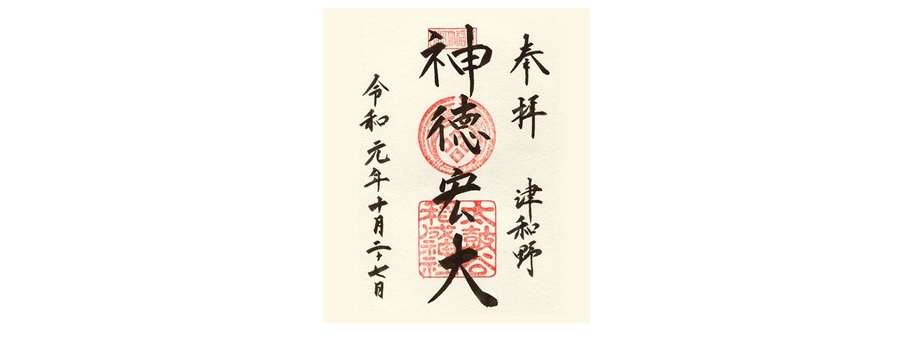 奉拝 津和野
神徳宏大
太皷谷
稲成神社
令和元年十月二七日